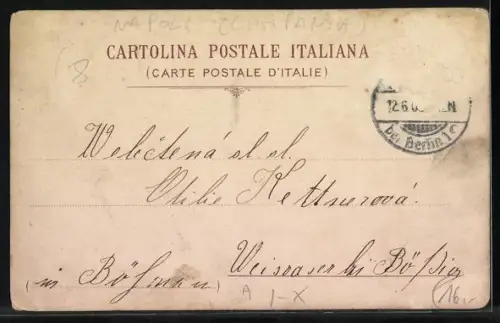 NAPOLI (CAMPANIA)
8
CARTOLINA POSTALE ITALIANA
(CARTE POSTALE D'ITALIE)
12.6.0
bei Berlin 1c
Velectěná sl. sl.
Otilie Kettnerová
Weisraser bei Bößig
(in Böhmen)
A I-X
(16.-